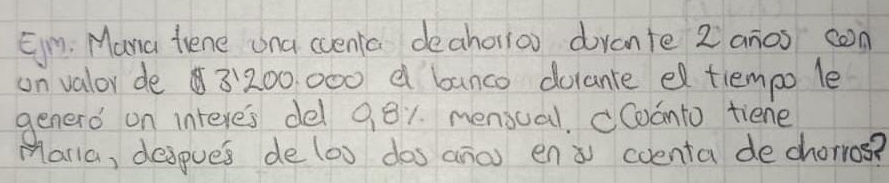 Ejm. Maria tiene una cuenta de ahorros durante 2 años con
un valor de $ 3'200.000 el banco durante el tiempo le
generó un interés del 0,8% mensual. ¿Cuánto tiene
Maria, después de los dos años en su cuenta de chorros?